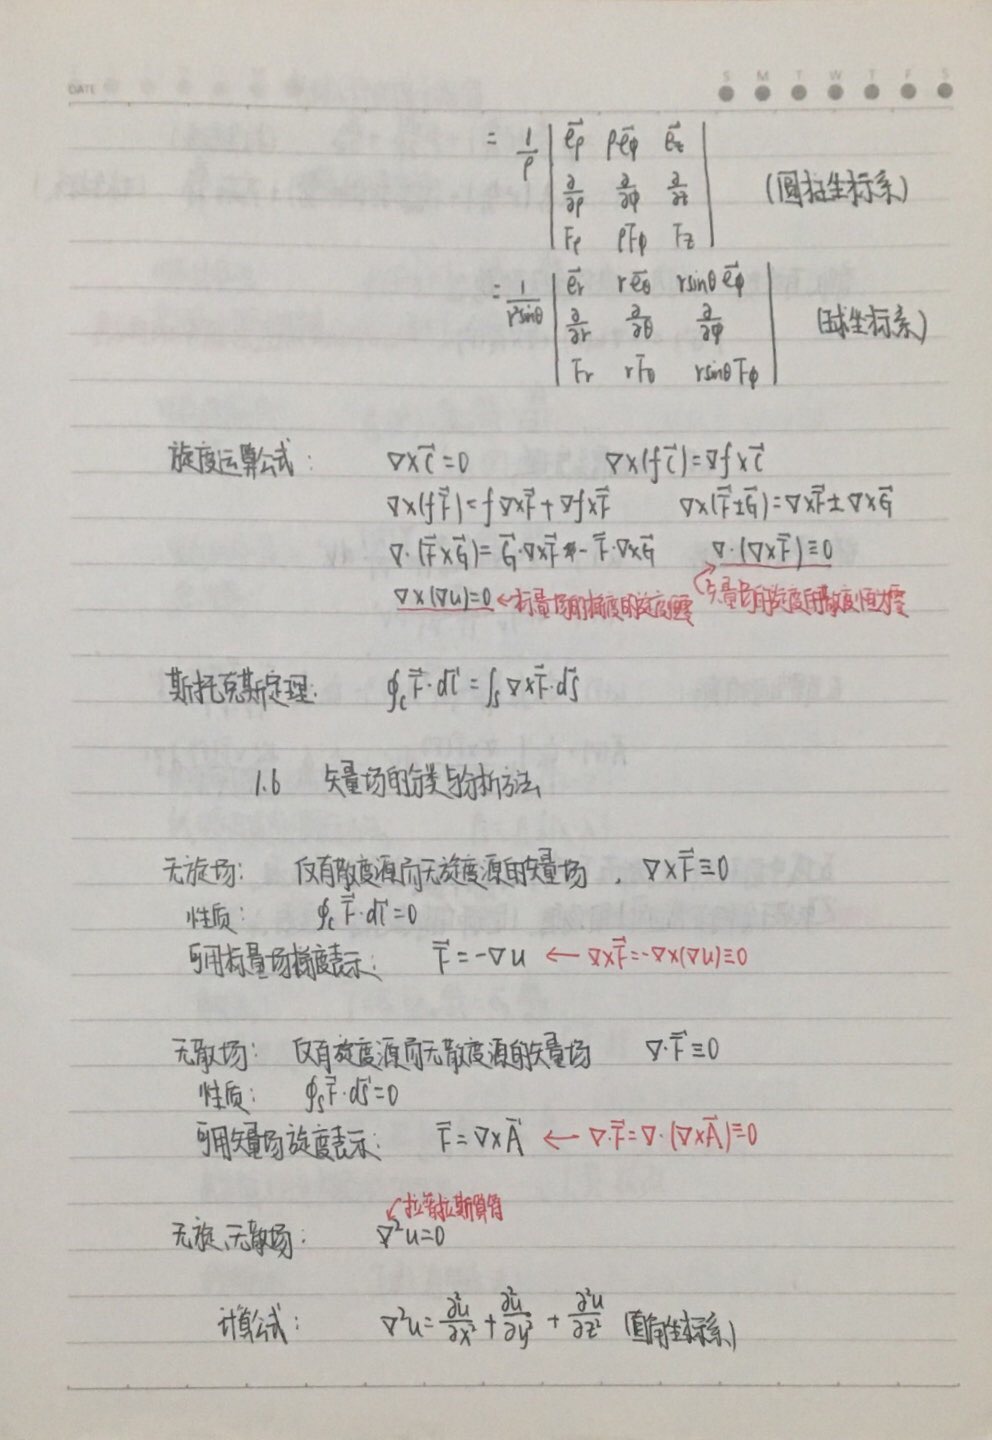 DATE S M T W T F S
= 1/ρ | e⃗ρ ρe⃗φ e⃗z |
| ∂/∂ρ ∂/∂φ ∂/∂z | (圆柱坐标系)
| Fρ ρFφ Fz |
= 1/r²sinθ | e⃗r re⃗θ rsinθe⃗φ |
| ∂/∂r ∂/∂θ ∂/∂φ | (球坐标系)
| Fr rFθ rsinθFφ |
旋度运算公式: ∇×C⃗=0 ∇×(fC⃗)=∇f×C⃗
∇×(fF⃗)=f∇×F⃗+∇f×F⃗ ∇×(F⃗±G⃗)=∇×F⃗±∇×G⃗
∇·(F⃗×G⃗)=G⃗·∇×F⃗-F⃗·∇×G⃗ ∇·(∇×F⃗)≡0
∇×(∇u)=0 ←标量场的梯度的旋度恒零 矢量场的旋度的散度恒为零
斯托克斯定理: ∮c F⃗·dl⃗=∫s ∇×F⃗·dS⃗
1.6 矢量场的分类与分析方法
无旋场: 仅有散度源而无旋度源的矢量场, ∇×F⃗≡0
性质: ∮c F⃗·dl⃗=0
可用标量场梯度表示: F⃗=-∇u ← ∇×F⃗=-∇×(∇u)≡0
无散场: 仅有旋度源而无散度源的矢量场 ∇·F⃗≡0
性质: ∮s F⃗·dS⃗=0
可用矢量场旋度表示: F⃗=∇×A⃗ ← ∇·F⃗=∇·(∇×A⃗)≡0
拉普拉斯算符
无旋、无散场: ∇²u=0
计算公式: ∇²u=∂²u/∂x²+∂²u/∂y²+∂²u/∂z² (直角坐标系)